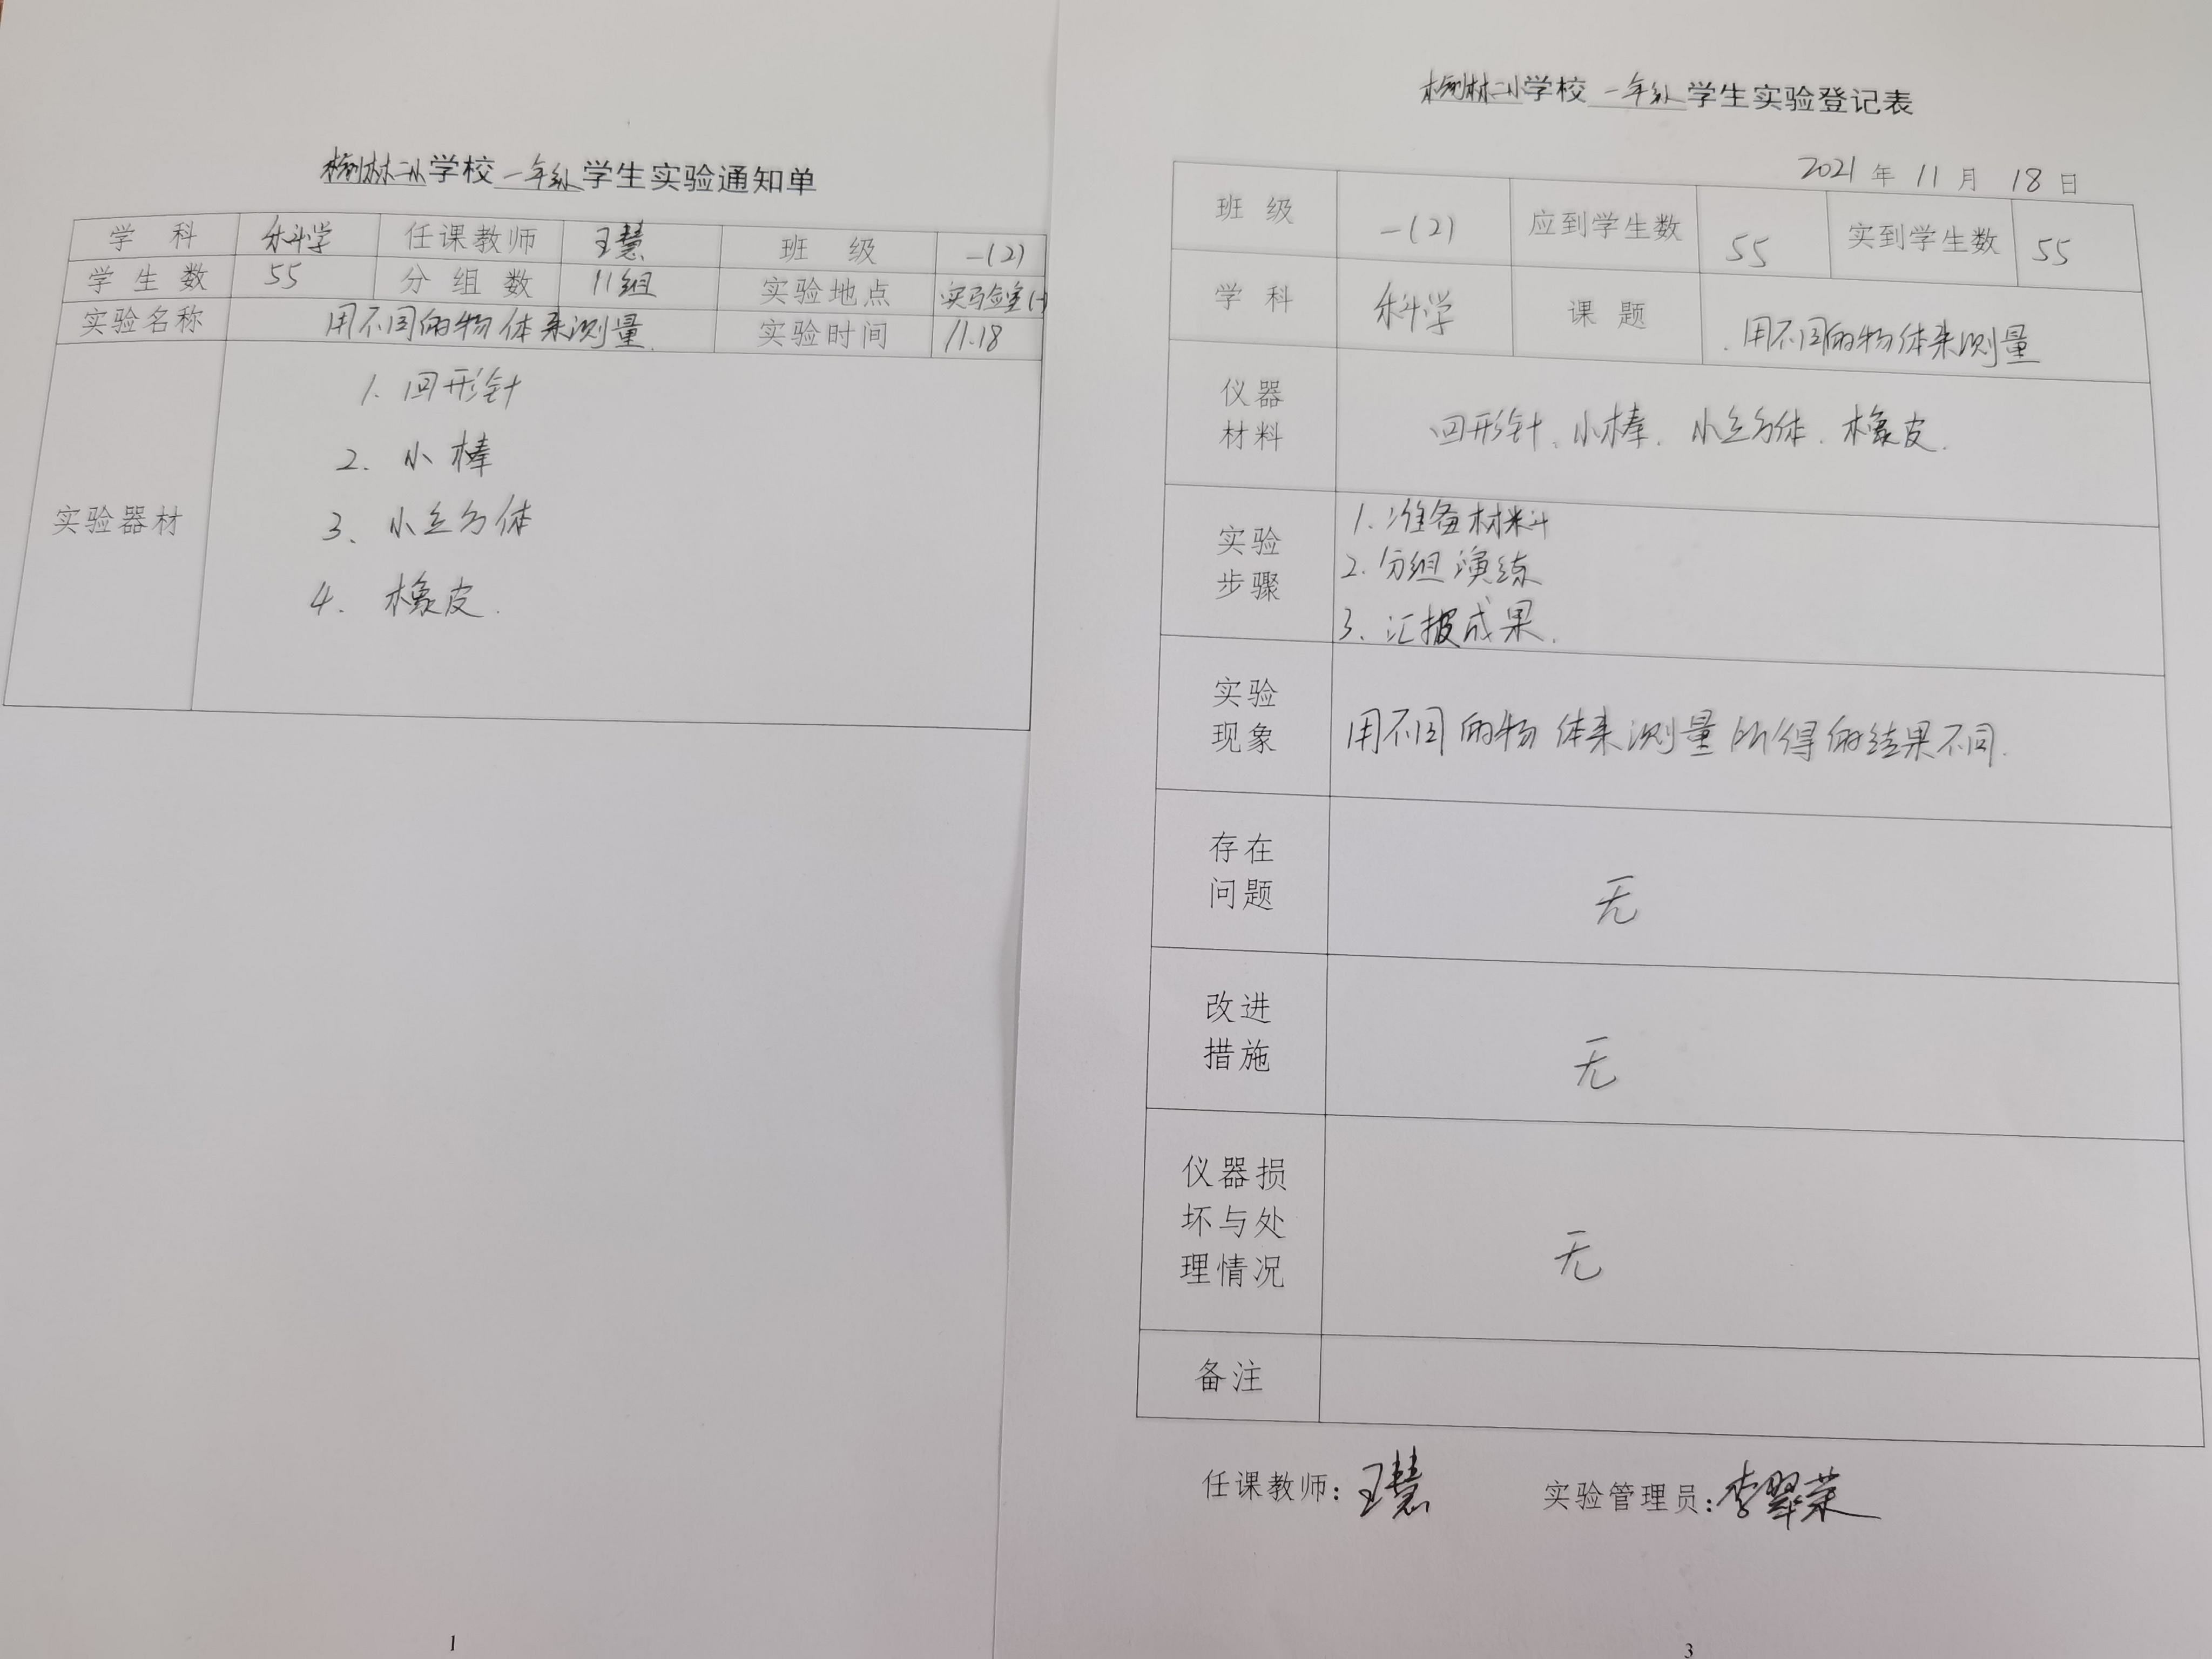 榆树林二小学校 一年级 学生实验通知单
学 科 科学 任课教师 王慧 班 级 一(2)
学 生 数 55 分 组 数 11组 实验地点 实验室(一)
实验名称 用不同的物体来测量. 实验时间 11.18
实验器材
1. 回形针
2. 小棒
3. 小立方体
4. 橡皮.
1
学校 一年级 学生实验登记表
2021 年 11 月 18 日
班 级 一(2) 应到学生数 55 实到学生数 55
学 科 科学 课 题 用不同的物体来测量
仪器
材料
回形针、小棒、小立方体、橡皮.
实验
步骤
1. 准备材料
2. 分组演练
3. 汇报成果.
实验
现象
用不同的物体来测量所得的结果不同.
存在
问题
无
改进
措施
无
仪器损
坏与处
理情况
无
备注
任课教师: 王慧 实验管理员: 李翠荣
3